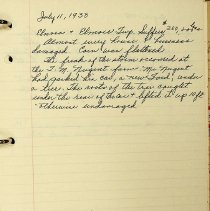 July 11, 1938
Elmora + Elmora Twp. Suffers $250,000 loss
Almost every house + business
damaged. Corn was flattened
The freak of the storm occurred at
the T. M. Nugent farm. Mr. Nugent
had parked his car, a new Ford, under a
tree. The roots of the tree caught
under the rear of the car + lifted it up 10 ft
otherwise undamaged